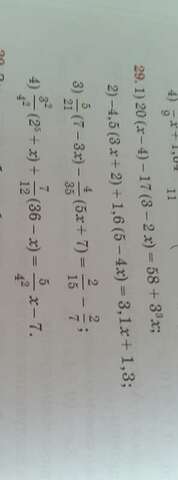 29. 1) 20(x−4)−17(3−2x)=58+3³x;
2) −4,5(3x+2)+1,6(5−4x)=3,1x+1,3;
3) 5/21(7−3x)−4/35(5x+7)=2/15−2/7;
4) 3²/4²(2⁵+x)+7/12(36−x)=5/4²x−7.